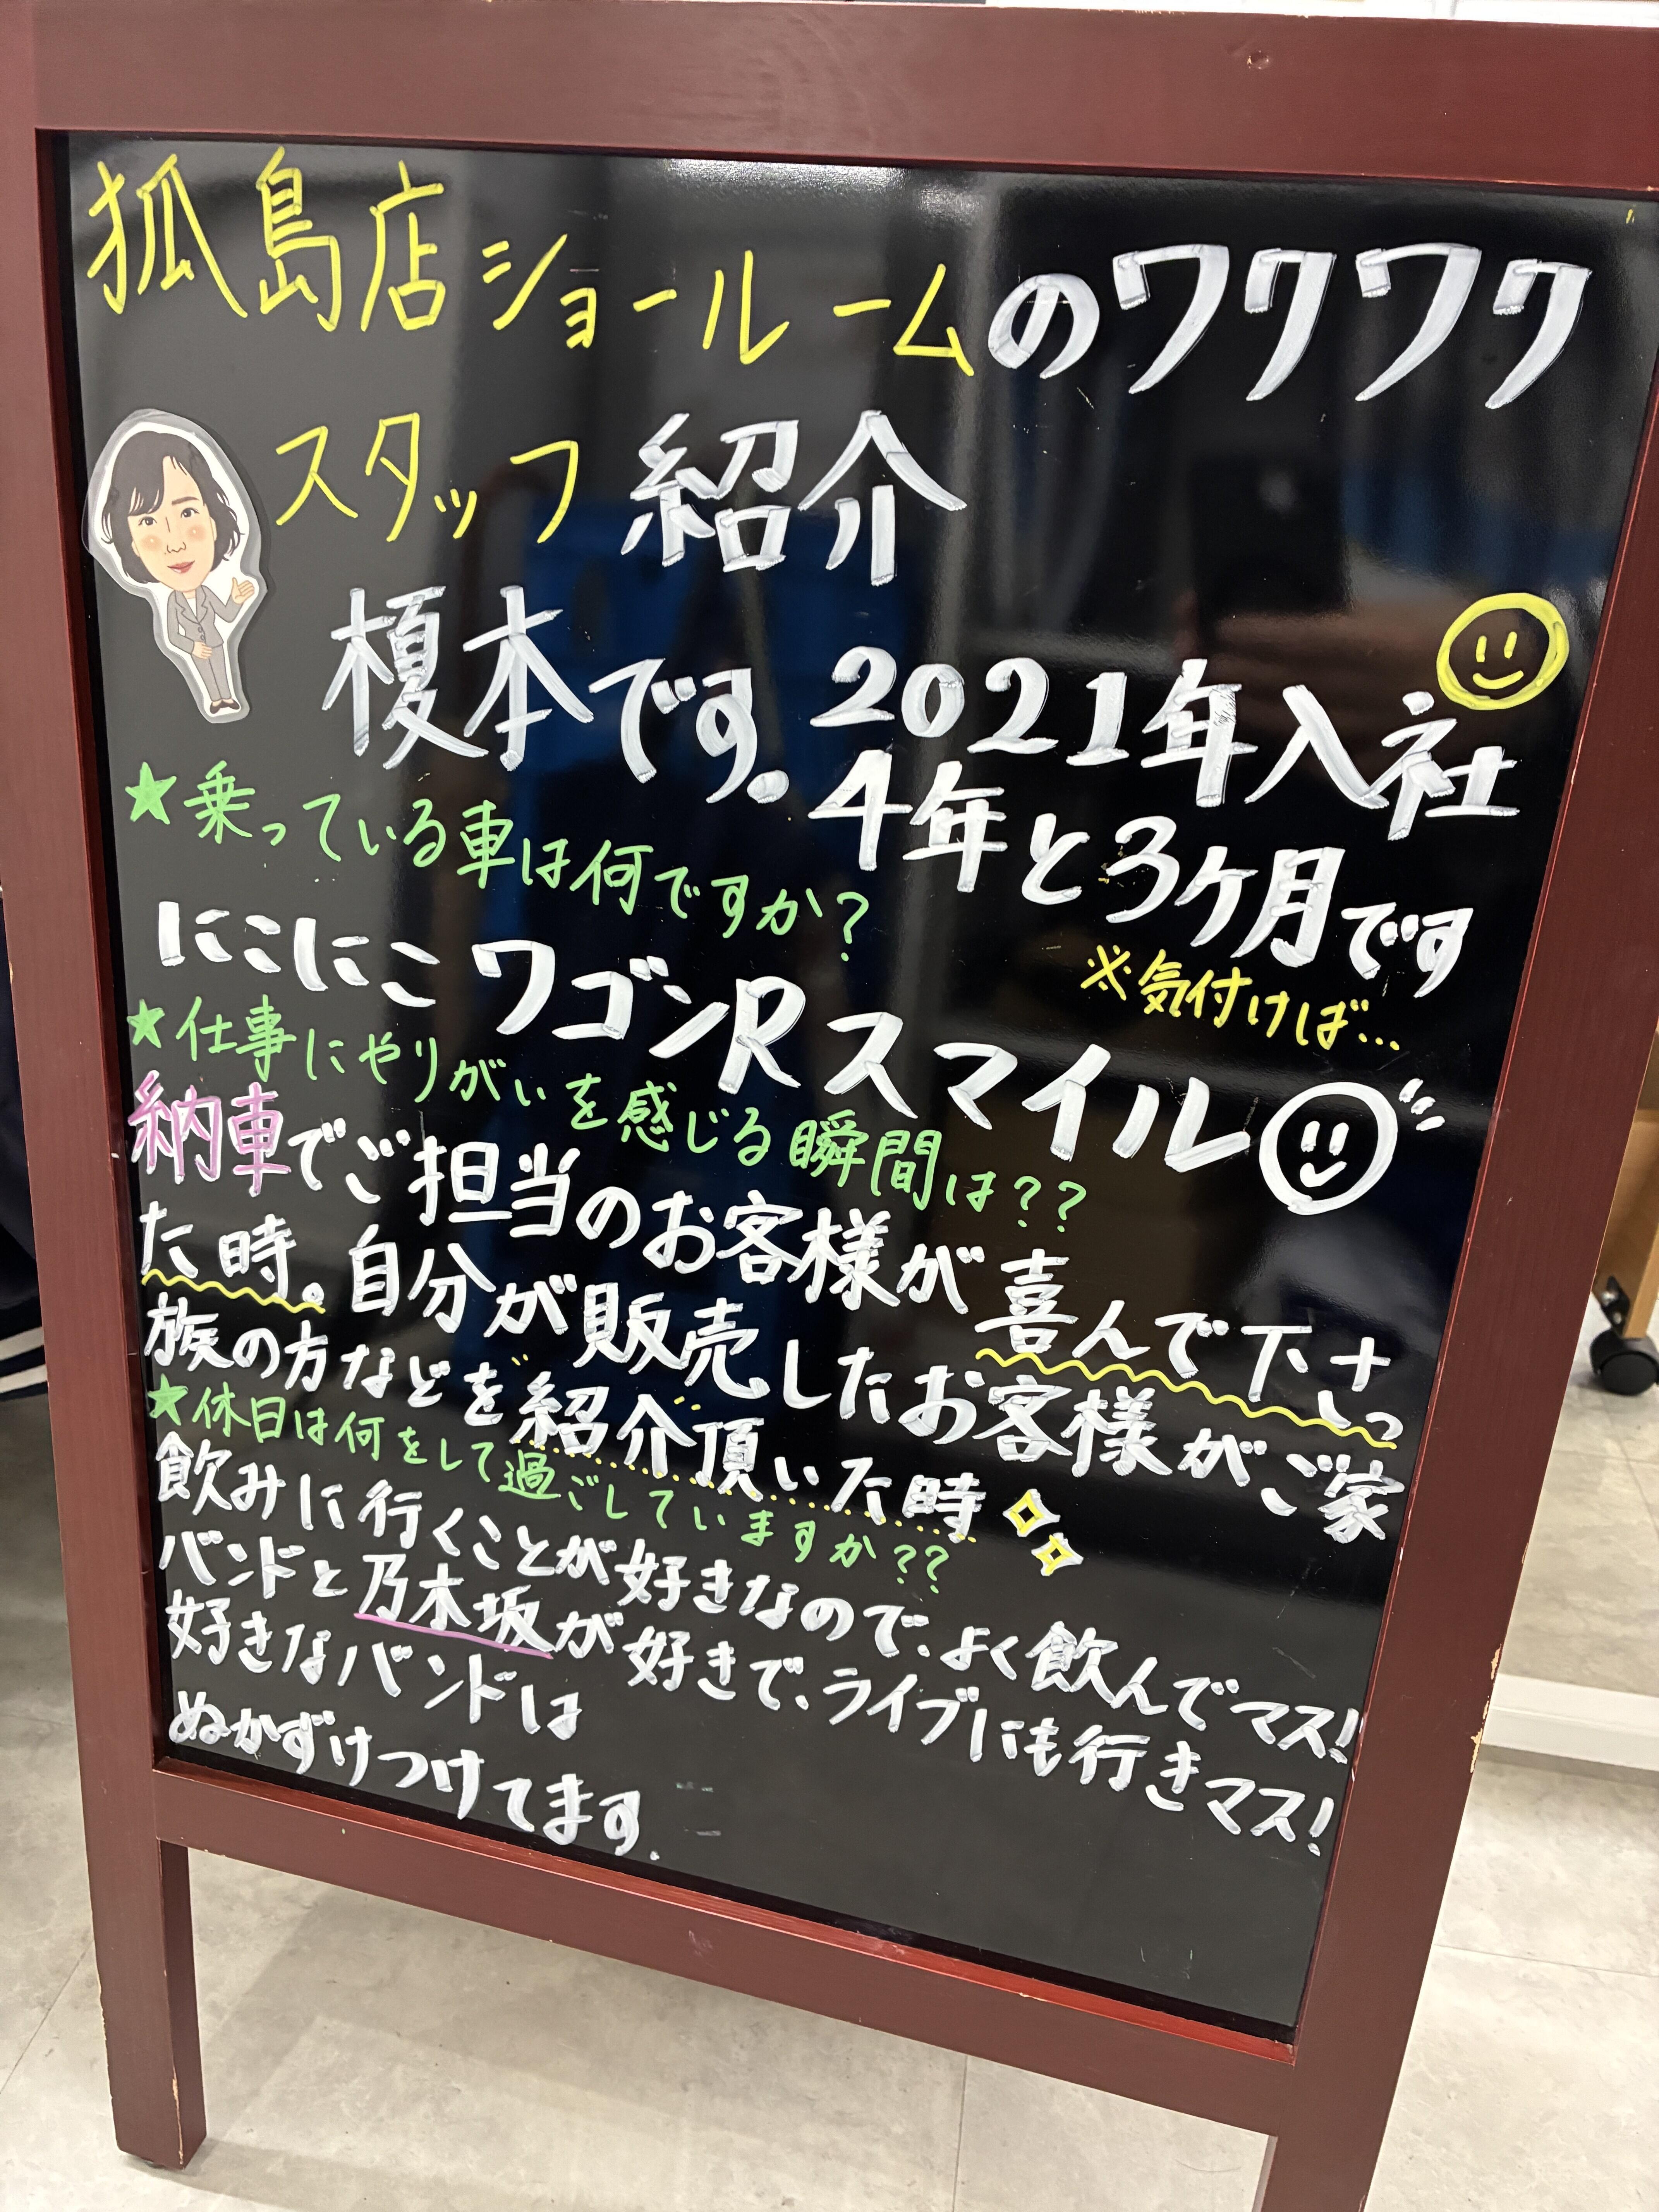 狐島店ショールームのワクワク
スタッフ紹介
榎本です。2021年入社
4年と3ケ月です
※気付けば…
★乗っている車は何ですか?
にこにこワゴンRスマイル
★仕事にやりがいを感じる瞬間は??
納車でご担当のお客様が喜んで下さっ
た時。自分が販売したお客様がご家
族の方などを紹介頂いた時
★休日は何をして過ごしていますか??
飲みに行くことが好きなので、よく飲んでマス!
バンドと乃木坂が好きで、ライブにも行きマス!
好きなバンドは
ぬかずけつけてます.